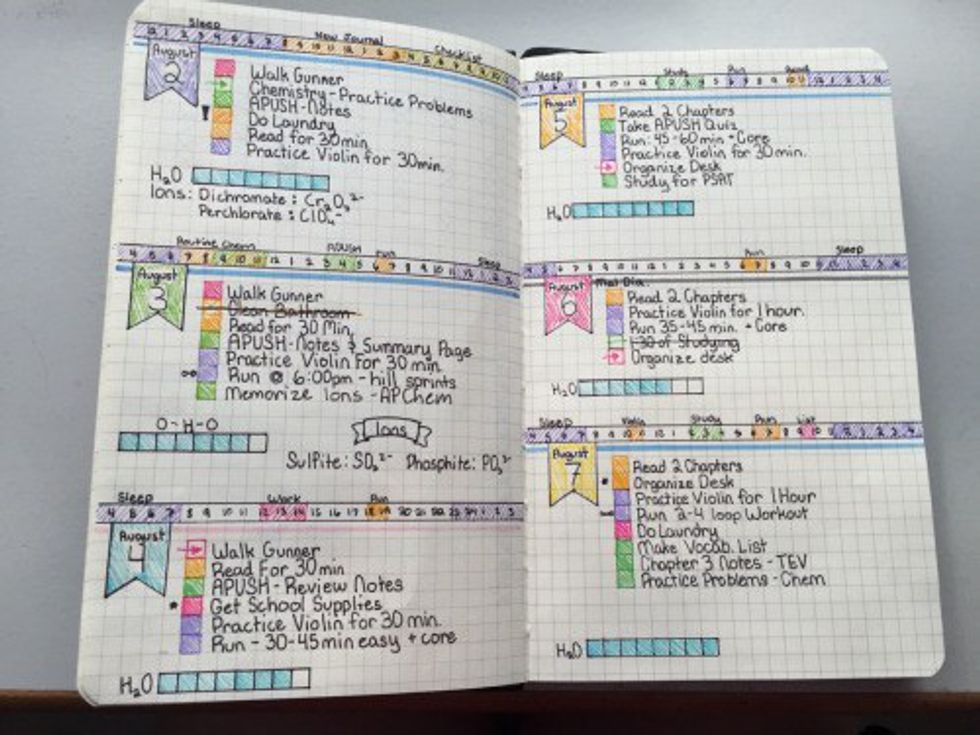 Sleep New Journal Checklist
August
2
Walk Gunner
Chemistry-Practice Problems
APUSH-Notes
! Do Laundry
Read for 30min
Practice Violin for 30min.
H₂O
Ions: Dichromate: Cr₂O₇²⁻
Perchlorate: ClO₄⁻
Routine Chem APUSH Run Sleep
August
3
Walk Gunner
Clean Bathroom
Read for 30 Min.
APUSH-Notes & Summary Page
Practice Violin For 30 min
Run @ 6:00pm - hill sprints
Memorize Ions - AP Chem
O-H-O
Ions
Sulfite: SO₃²⁻ Phosphite: PO₃³⁻
Sleep Work Run
4 5 6 7 8 9 10 11 12 13 14 15 16 17 18 19 20 21 22 23 24 1 2 3
August
4
Walk Gunner
Read For 30min
APUSH-Review Notes
Get School Supplies
Practice Violin for 30 min.
Run - 30-45min easy + core
H₂O
Sleep Study Run Read
August
5
Read 2 Chapters
Take APUSH Quiz
Run: 45-60min +Core
Practice Violin for 30min.
Organize Desk
Study for PSAT
H₂O
Run Sleep
August
6
Read 2 Chapters
Practice Violin for 1 hour.
Run 35-45 min. +Core
1:30 of Studying
Organize desk
H₂O
Sleep Violin Study Run List
August
7
Read 2 Chapters
Organize Desk
Practice Violin for 1 Hour
Run 2-4 loop Workout
Do Laundry
Make Vocab. List
Chapter 3 Notes - TEV
Practice Problems - Chem
H₂O